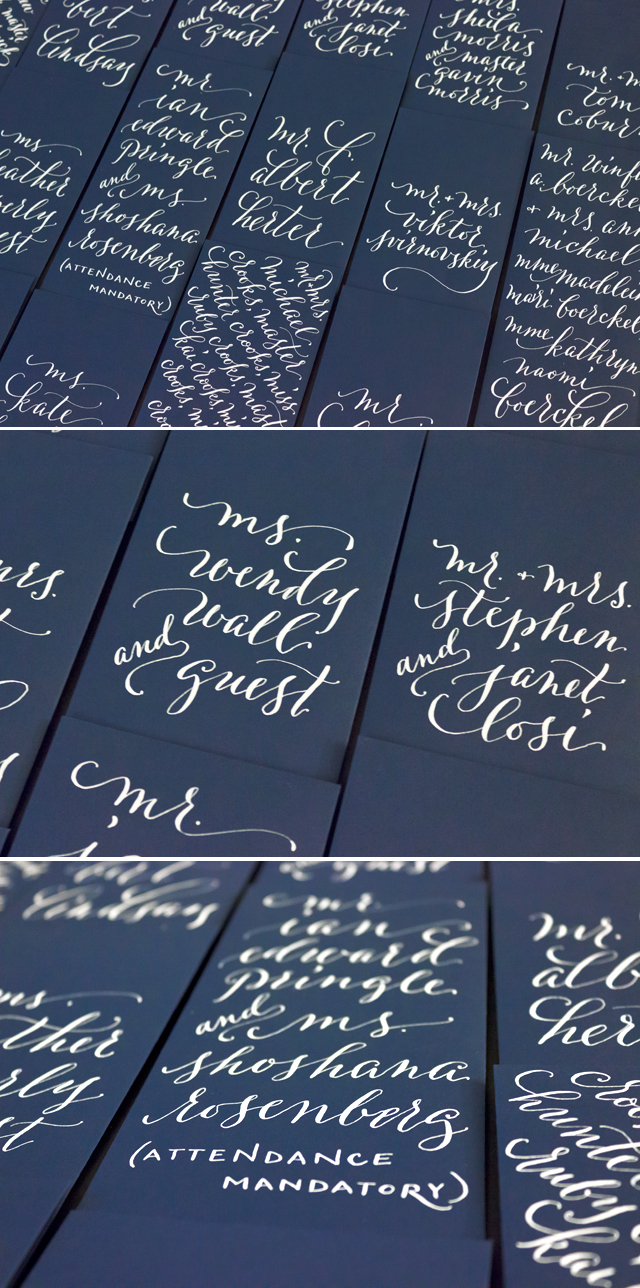 bert
lindsay
wall
and guest
stephen
and janet
closi
mrs.
sheila
morris
and master
gavin
morris
mr.
tom
cobur
ms.
eather
erly
est
mr.
ian
edward
pringle
and ms.
shoshana
rosenberg
(ATTENDANCE
MANDATORY)
mr. C.
albert
herter
mr. + mrs.
viktor
svirnovskiy
mr. winf
a. boerckel
+ mrs. ann
michael
mme madelein
mari boerckel
mme kathryn
naomi
boerckel
ms.
kate
mr + mrs.
michael
crooks, master
hunter crooks, miss
ruby crooks, mast
kai crooks, mi
crooks
mr.
mrs.
ms.
wendy
wall
and guest
mr. + mrs.
stephen
and janet
closi
mr.
lindsay
ms.
ther
rly
st
mr.
ian
edward
pringle
and ms.
shoshana
rosenberg
(ATTENDANCE
MANDATORY)
mr.
alb
her
croo
hunte
ruby
kai